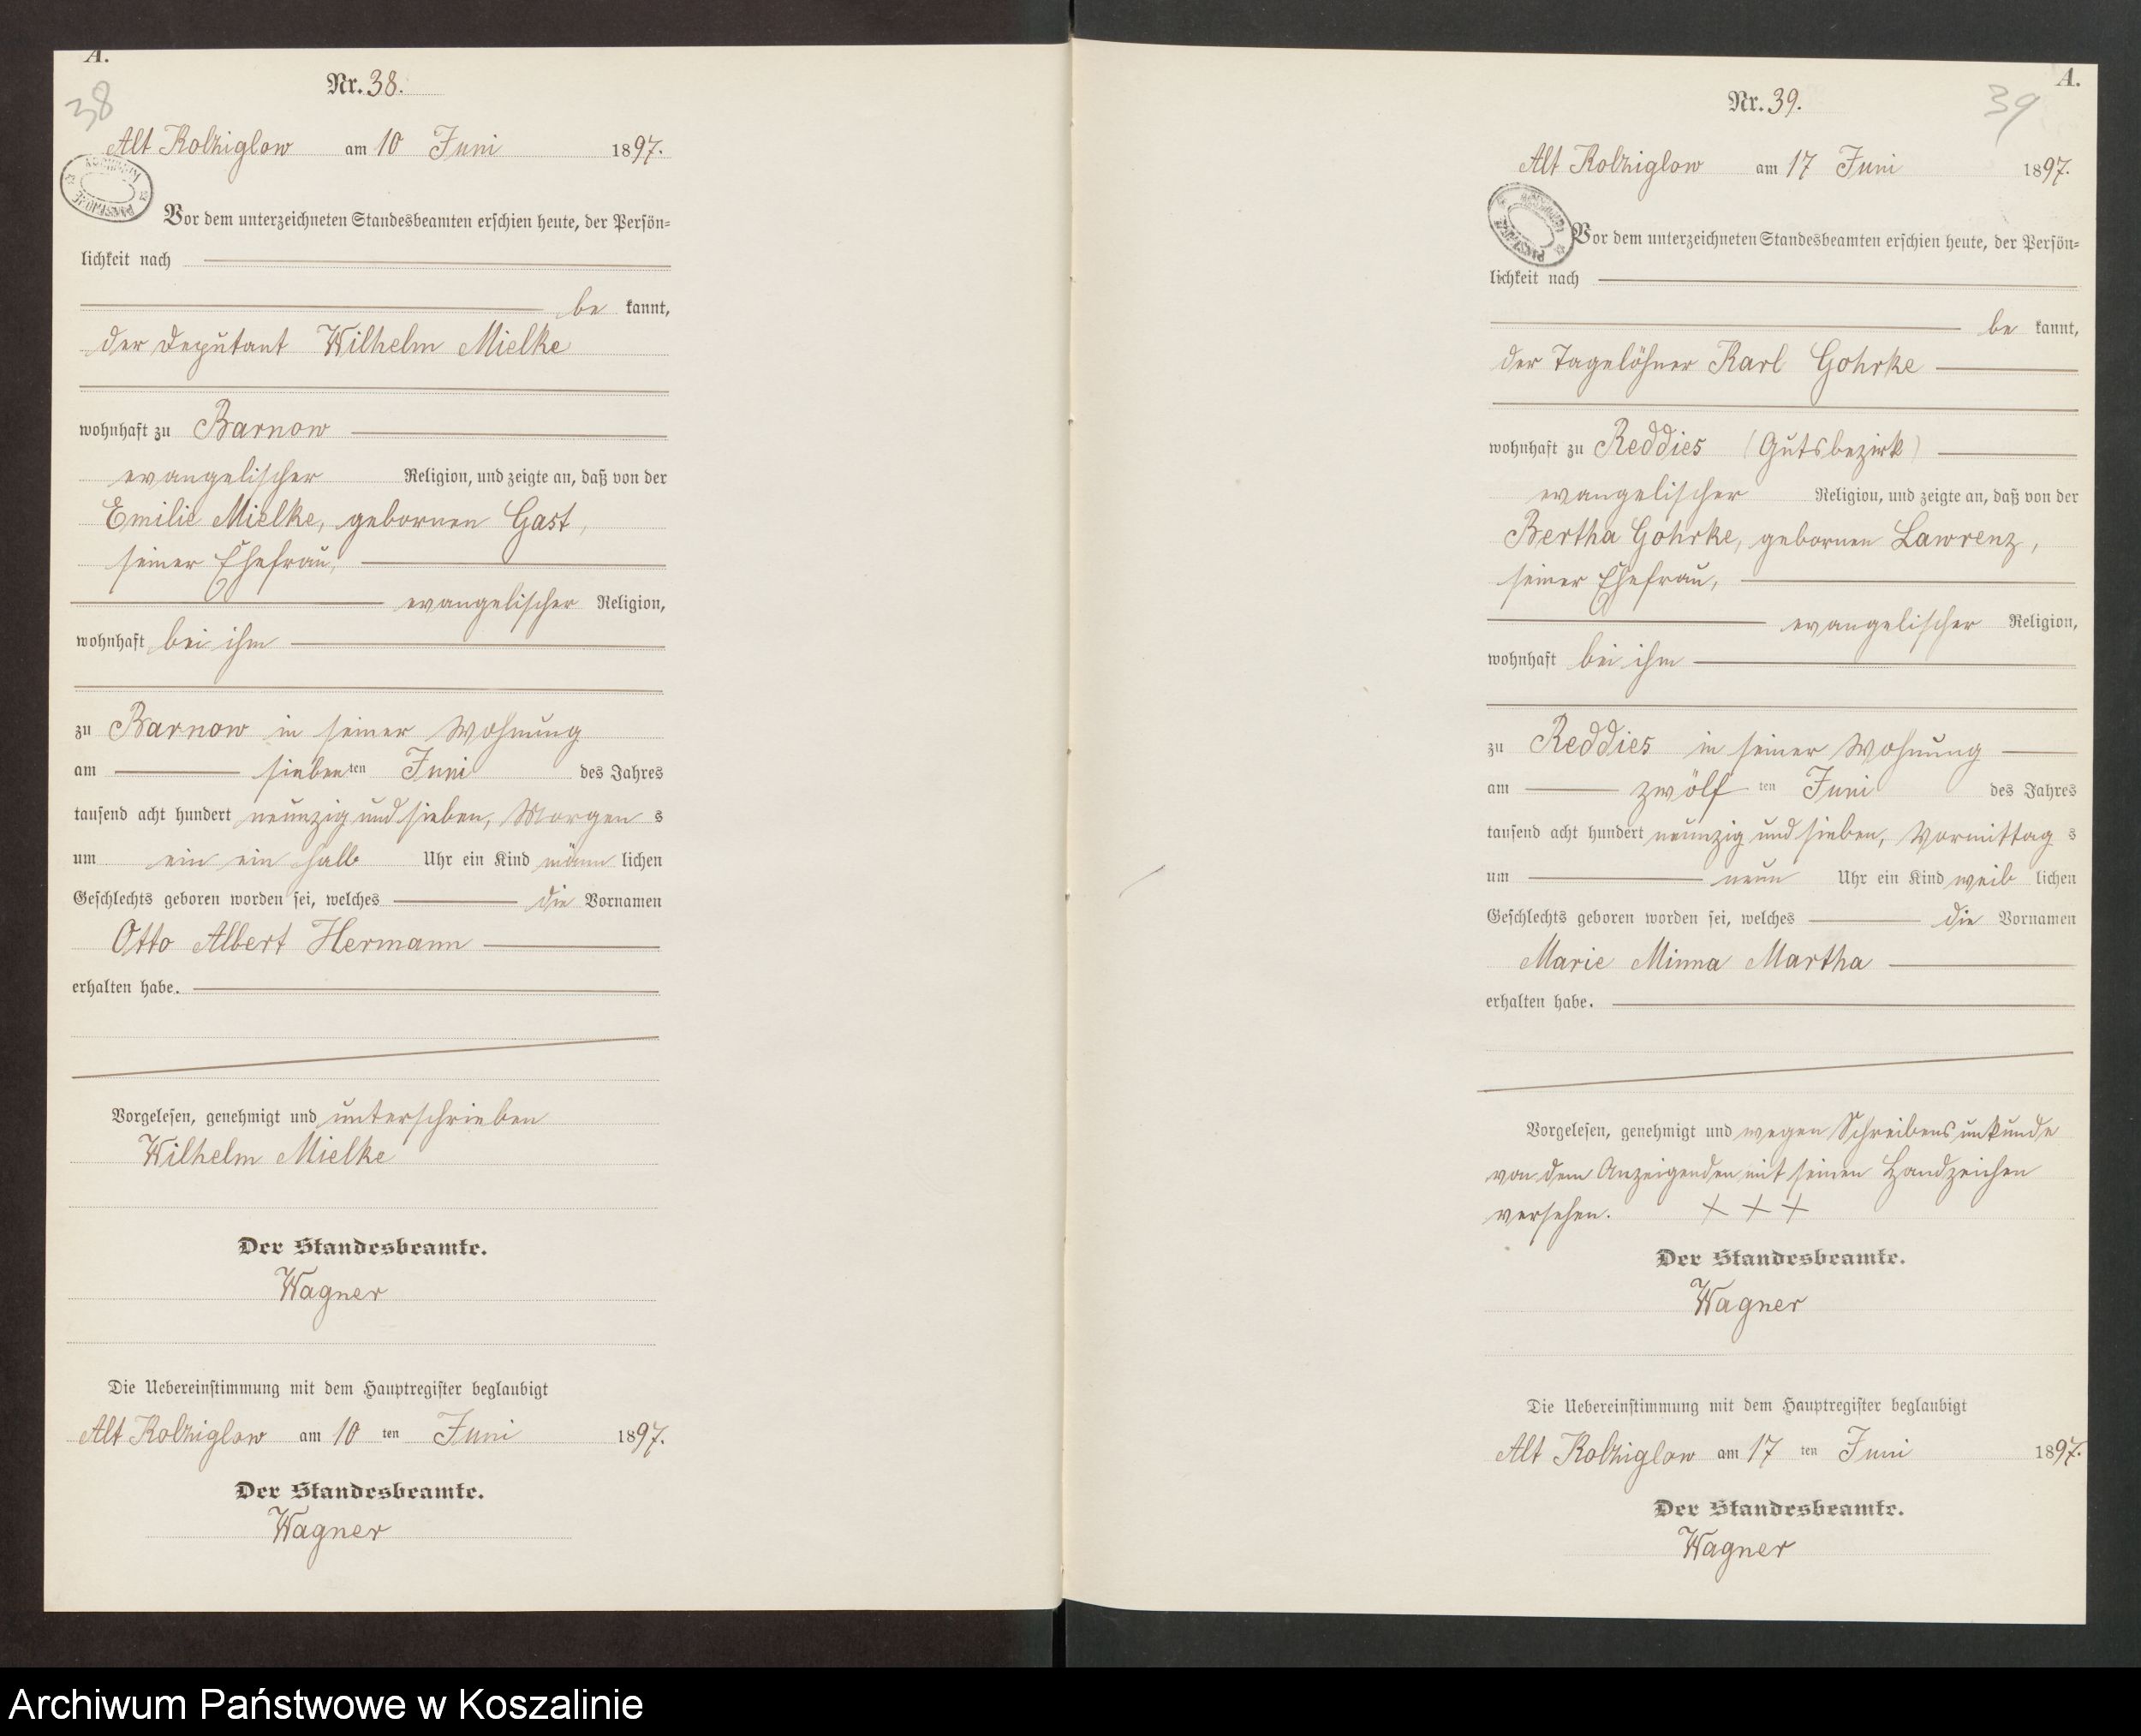 A.
Nr. 38.
38
Alt Kolziglow am 10 Juni 1897.
Vor dem unterzeichneten Standesbeamten erschien heute, der Persön=
lichkeit nach
be kannt,
der Deputant Wilhelm Mielke
wohnhaft zu Barnow
evangelischer Religion, und zeigte an, daß von der
Emilie Mielke, gebornen Gast,
seiner Ehefrau,
evangelischer Religion,
wohnhaft bei ihm
zu Barnow in seiner Wohnung
am siebenten Juni des Jahres
tausend acht hundert neunzig und sieben, Morgen s
um ein ein halb Uhr ein Kind männ lichen
Geschlechts geboren worden sei, welches die Vornamen
Otto Albert Hermann
erhalten habe.
Vorgelesen, genehmigt und unterschrieben
Wilhelm Mielke
Der Standesbeamte.
Wagner
Die Uebereinstimmung mit dem Hauptregister beglaubigt
Alt Kolziglow am 10 ten Juni 1897.
Der Standesbeamte.
Wagner
A.
Nr. 39.
39
Alt Kolziglow am 17 Juni 1897.
Vor dem unterzeichneten Standesbeamten erschien heute, der Persön=
lichkeit nach
be kannt,
der Tagelöhner Karl Gohrke
wohnhaft zu Reddies (Gutsbezirk)
evangelischer Religion, und zeigte an, daß von der
Bertha Gohrke, gebornen Lawrenz,
seiner Ehefrau,
evangelischer Religion,
wohnhaft bei ihm
zu Reddies in seiner Wohnung
am zwölf ten Juni des Jahres
tausend acht hundert neunzig und sieben, Vormittag s
um neun Uhr ein Kind weib lichen
Geschlechts geboren worden sei, welches die Vornamen
Marie Minna Martha
erhalten habe.
Vorgelesen, genehmigt und wegen Schreibensunkunde
von dem Anzeigenden mit seinen Handzeichen
versehen. + + +
Der Standesbeamte.
Wagner
Die Uebereinstimmung mit dem Hauptregister beglaubigt
Alt Kolziglow am 17 ten Juni 1897.
Der Standesbeamte.
Wagner
Archiwum Państwowe w Koszalinie